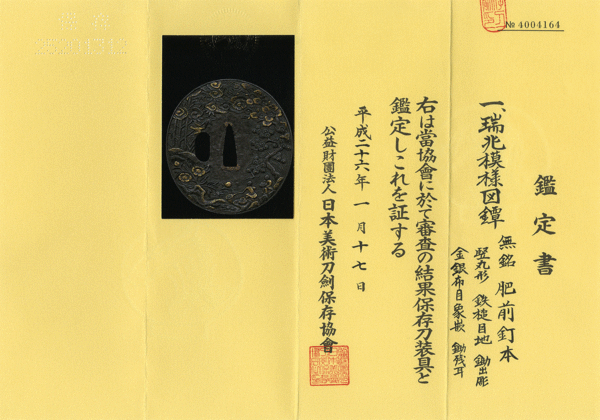 № 4004164
鑑定書
一、瑞兆模様図鐔
無銘 肥前 釘本
竪丸形 鉄槌目地 鋤出彫
金銀布目象嵌 鋤残耳
右は當協會に於て審査の結果保存刀装具と
鑑定しこれを証する
平成二十六年一月十七日
公益財團法人 日本美術刀剣保存協會